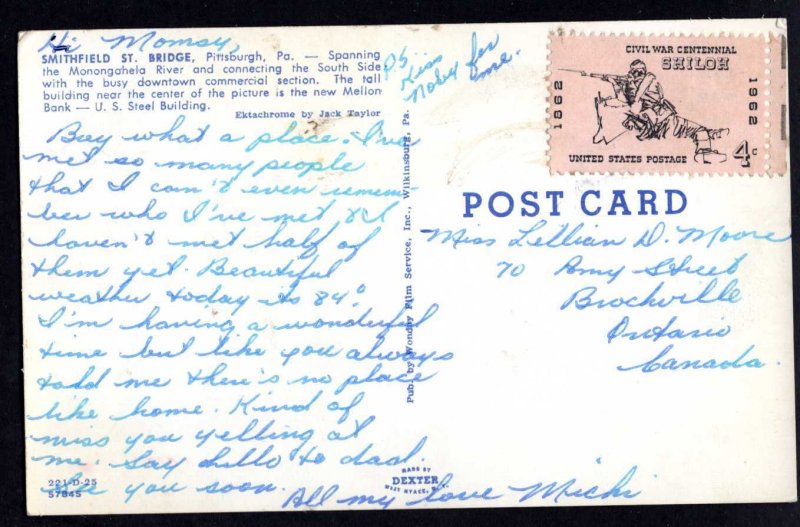 Hi Momsy,
SMITHFIELD ST. BRIDGE, Pittsburgh, Pa. — Spanning
the Monongahela River and connecting the South Side
with the busy downtown commercial section. The tall
building near the center of the picture is the new Mellon
Bank — U. S. Steel Building.
Ektachrome by Jack Taylor
P.S
Kiss
Nobby for
me.
Boy what a place. I've
met so many people
that I can't even remem
ber who I've met & I
haven't met half of
them yet. Beautiful
weather today its 84°.
I'm having a wonderful
time but like you always
told me there's no place
like home. Kind of
miss you yelling at
me. Say hello to dad.
See you soon.
All my love Michi
221-D-25
57845
Publ. by Wonday Film Service, Inc., Wilkinsburg, Pa.
MADE BY
DEXTER
WEST NYACK, N.Y.
CIVIL WAR CENTENNIAL
SHILOH
1862
1962
UNITED STATES POSTAGE 4c
POST CARD
Miss Lillian D. Moore
70 Amy Street
Brockville
Ontario
Canada.